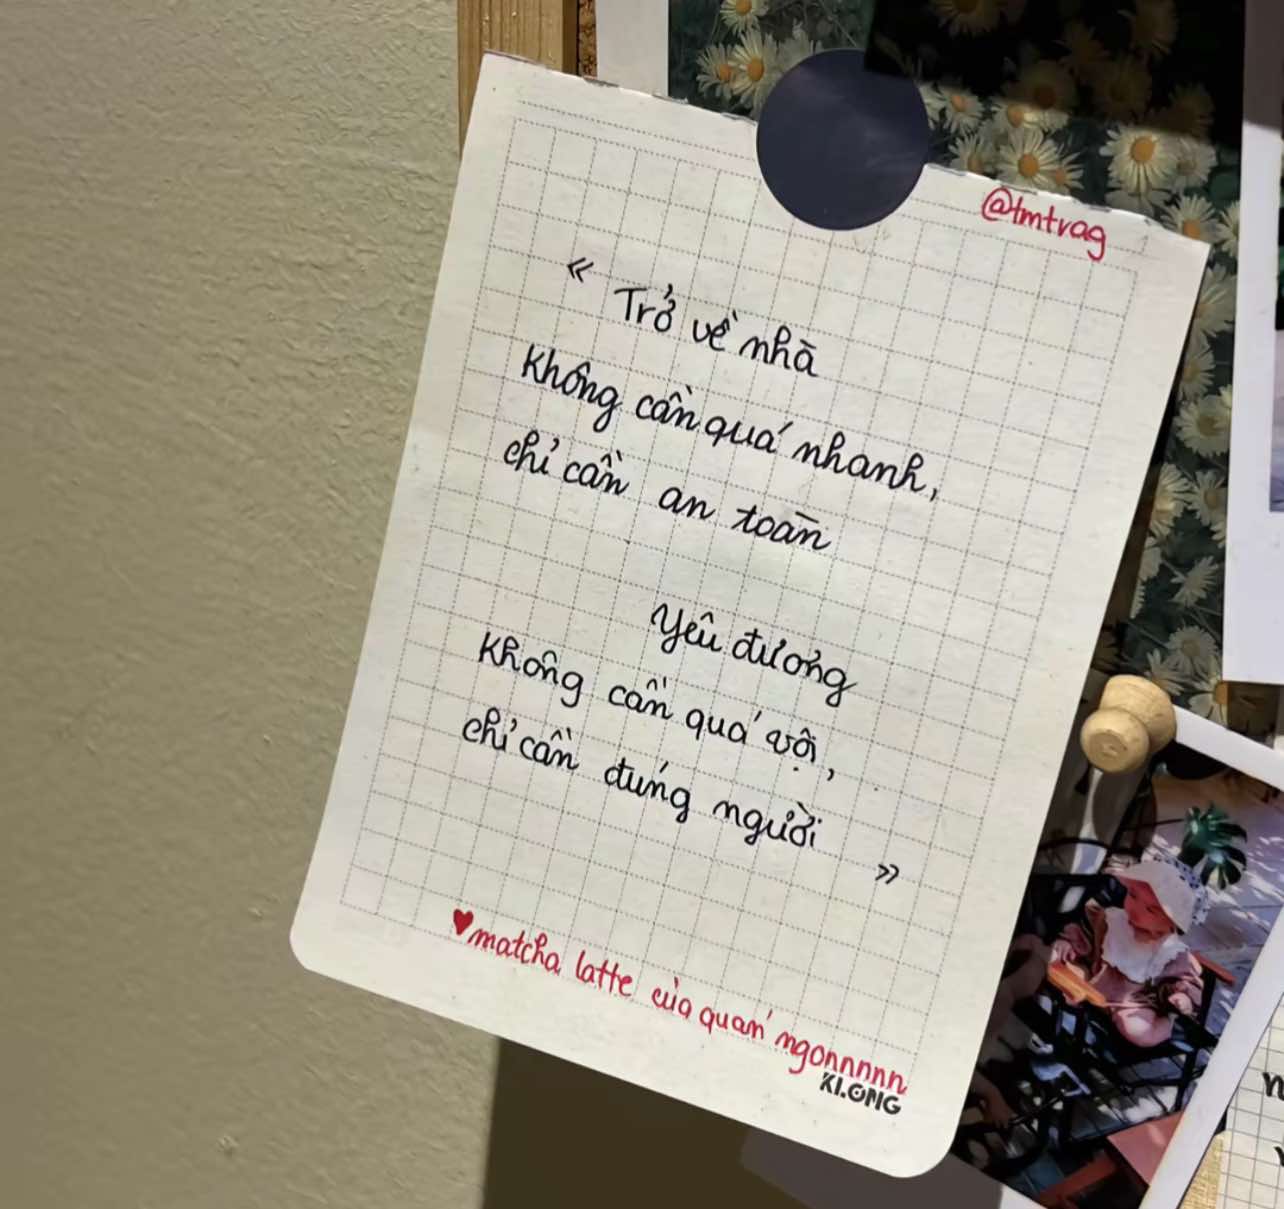 @tmtrag
« Trở về nhà
Không cần quá nhanh,
chỉ cần an toàn
Yêu đương
Không cần quá vội,
chỉ cần đúng người »
♥matcha latte của quán ngonnnnn
KI.ONG